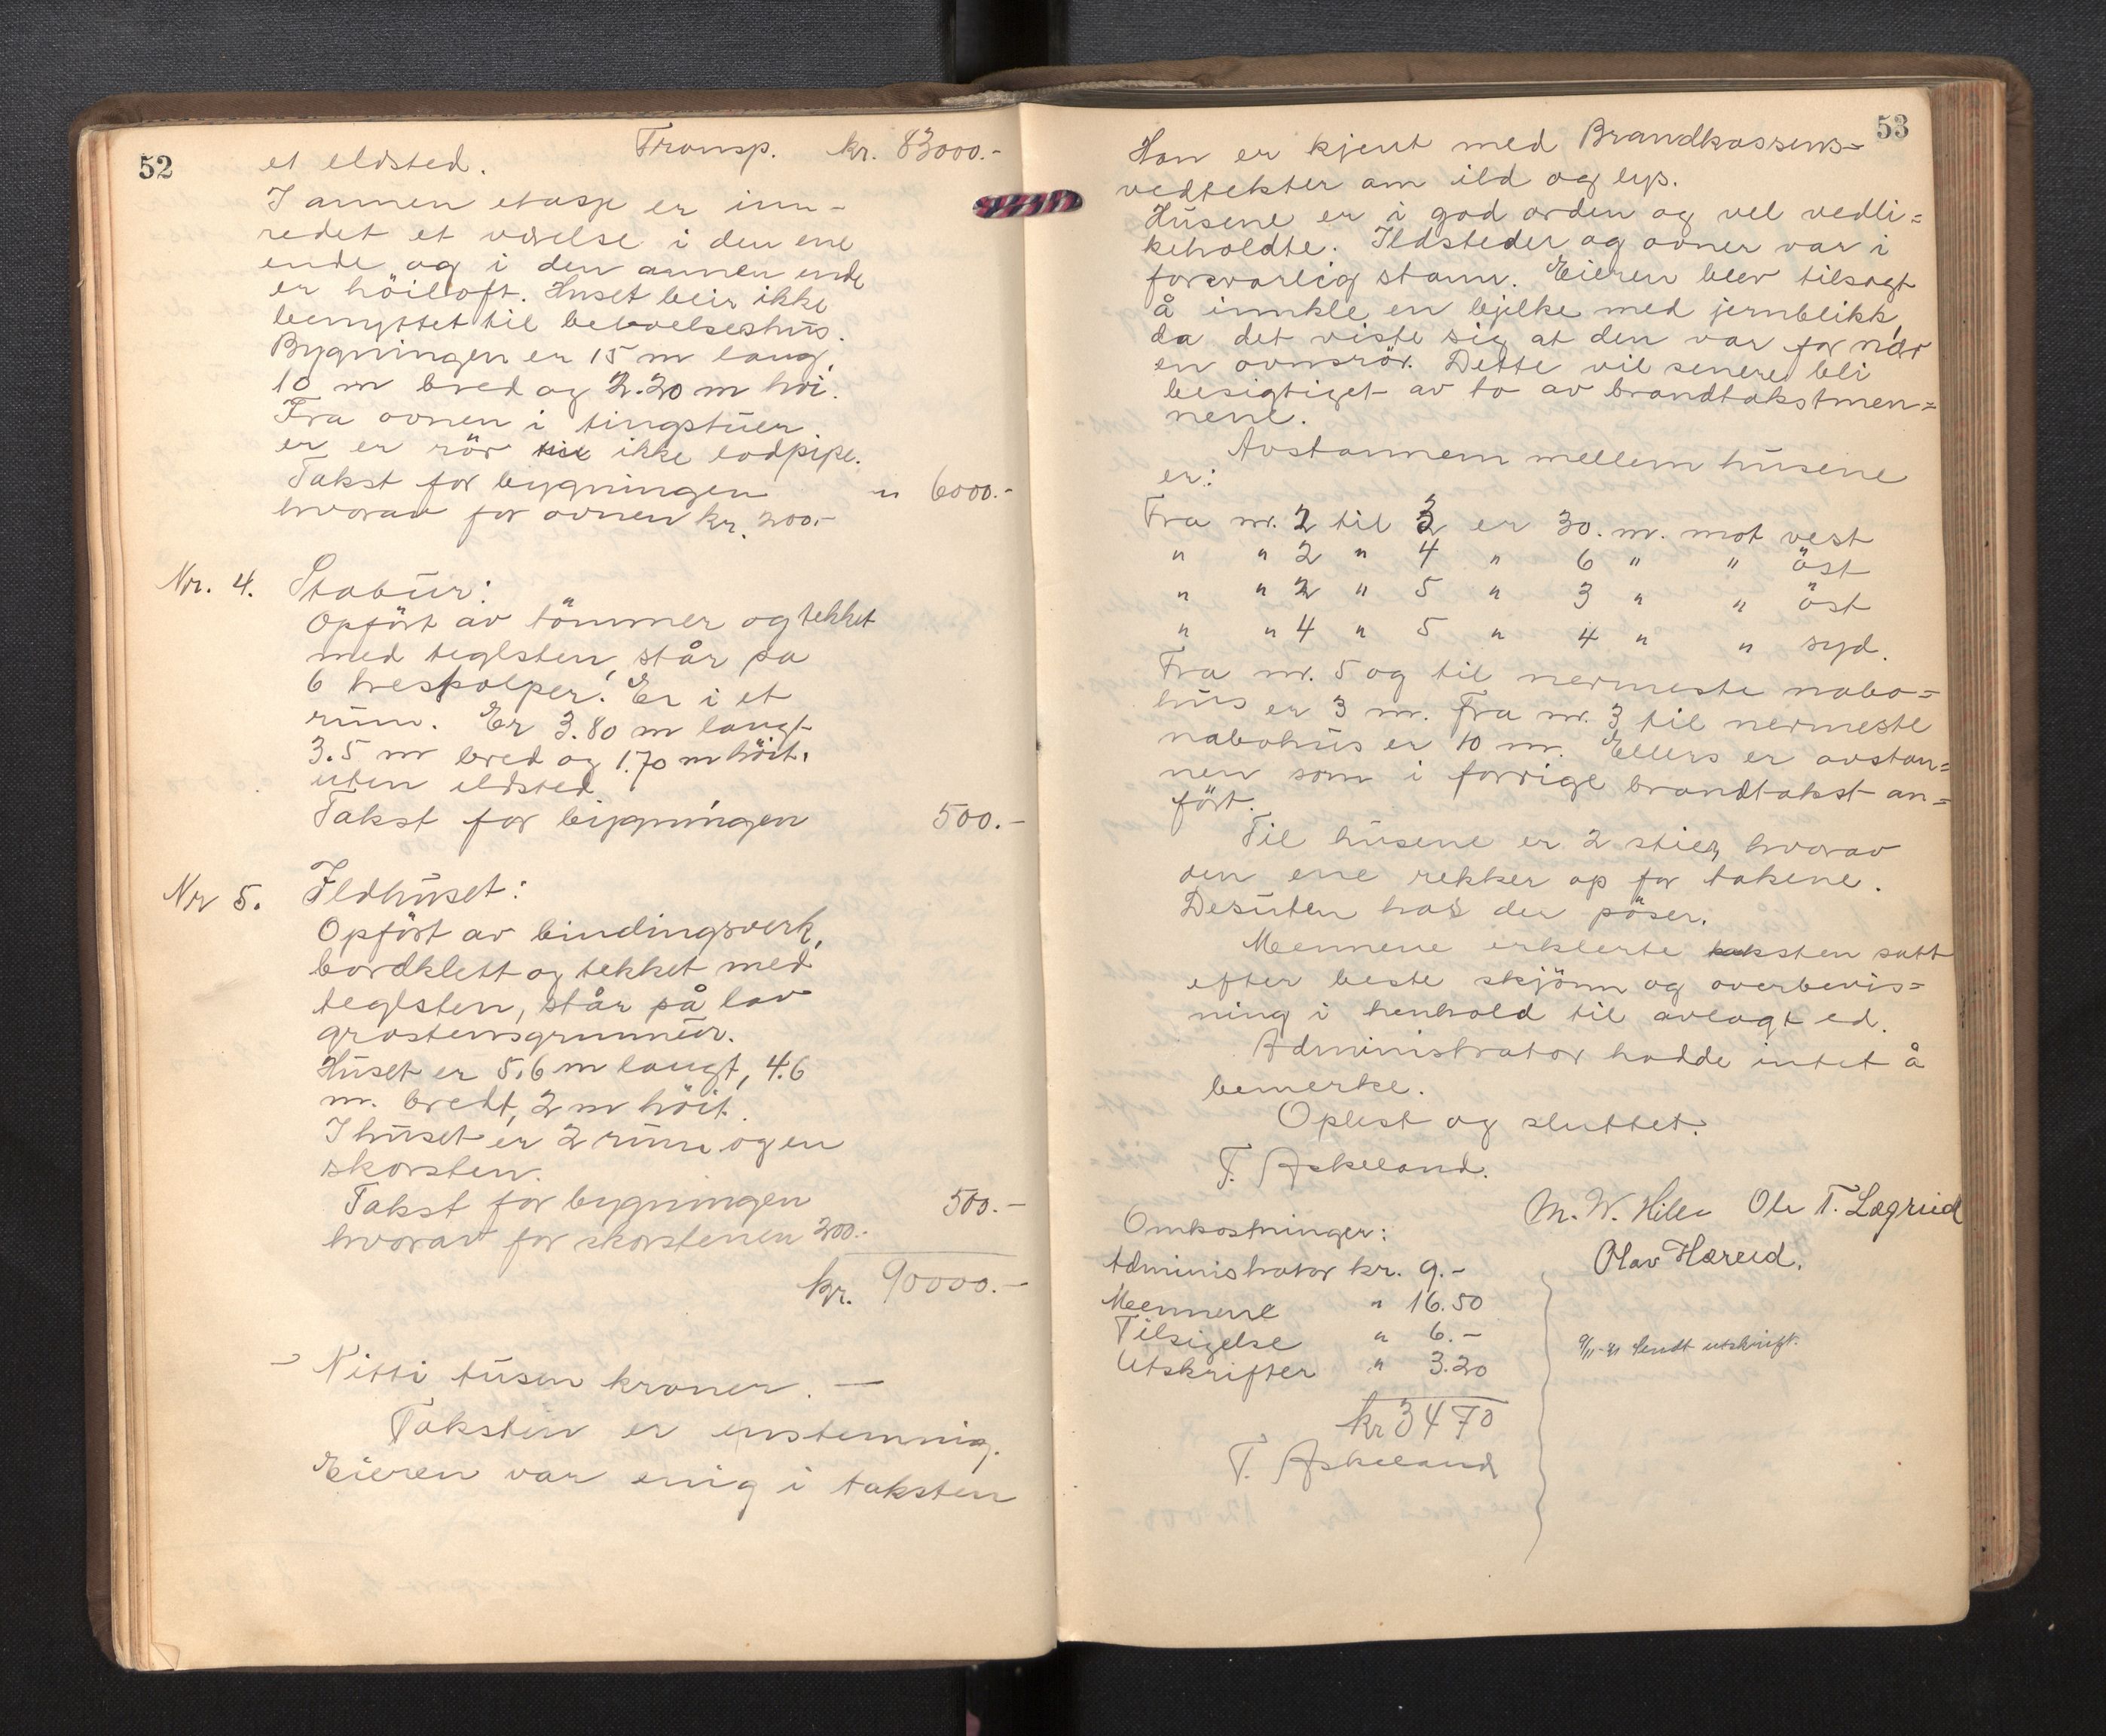 52
et eldsted. Transp. kr. 83000.-
I annen etasje er inn-
redet et værelse i den ene
ende og i den annen ende
er höiloft. Huset beir ikke
benyttet til beboelseshus.
Bygningen er 15 m lang,
10 m bred og 2.20 m höi.
Fra ovnen i tingstuen
er er rör ikke lodpipe.
Takst for bygningen " 6000.-
hvorav for ovnen kr. 200.-
Nr. 4. Stabur:
Opfört av tömmer og tekket
med teglsten, står på
6 trestolper. Er i et
rum. Er 3.80 m langt
3.5 m bred og 1.70 m höit.
uten eldsted.
Takst for bygningen 500.-
Nr 5. Ildhuset:
Opfört av bindingsverk,
bordklett og tekket med
teglsten, står på lav
grastensgrunnur.
Huset er 5.6 m langt, 4.6
m. bredt, 2 m höit.
I huset er 2 rum og en
skorsten.
Takst for bygningen 500.-
hvorav for skorstenen 200.-
kr. 90000.-
- Nitti tusen kroner. -
Taksten er enstemmig.
Eieren var enig i taksten
53
Han er kjent med Brandkassens=
vedtekter om ild og lys.
Husene er i god orden og vel vedli=
keholdte. Ildsteder og ovner var i
forsvarlig stann. Eieren blev tilsagt
å innkle en bjelke med jernblikk,
da det viste sig at den var for nær
en ovnsrör. Dette vil senere bli
besigtiget av to av brandtakstmen=
nene.
Avstannem mellem husene
er:
Fra nr. 2 til 3 er 30. m. mot vest
" " 2 " 4 " 6 " " öst
" " 2 " 5 " 3 " " öst
" " 4 " 5 " 4 " " syd.
Fra nr. 5 og til nermeste nabo=
hus er 3 m. Fra nr. 3 til nermeste
nabohus er 10 m. Ellers er avstan=
nen som i forrige brandtakst an=
fört.
Til husene er 2 stier, hvorav
den ene rekker op for takene.
Desuten has der pöser.
Mennene erklerte taksten satt
efter beste skjönn og overbevis=
ning i henhold til avlagt ed.
Administrator hadde intet å
bemerke.
Oplest og sluttet.
T. Askeland.
M. W. Hille Ole T. Lægreid
Olav Hæreid.
Omkostninger:
Administrator kr. 9.-
Mennene " 16.50
Tilsigelse " 6.-
Utskrifter " 3.20
kr 34 70
T. Askeland
9/11-41 Sendt utskrift.